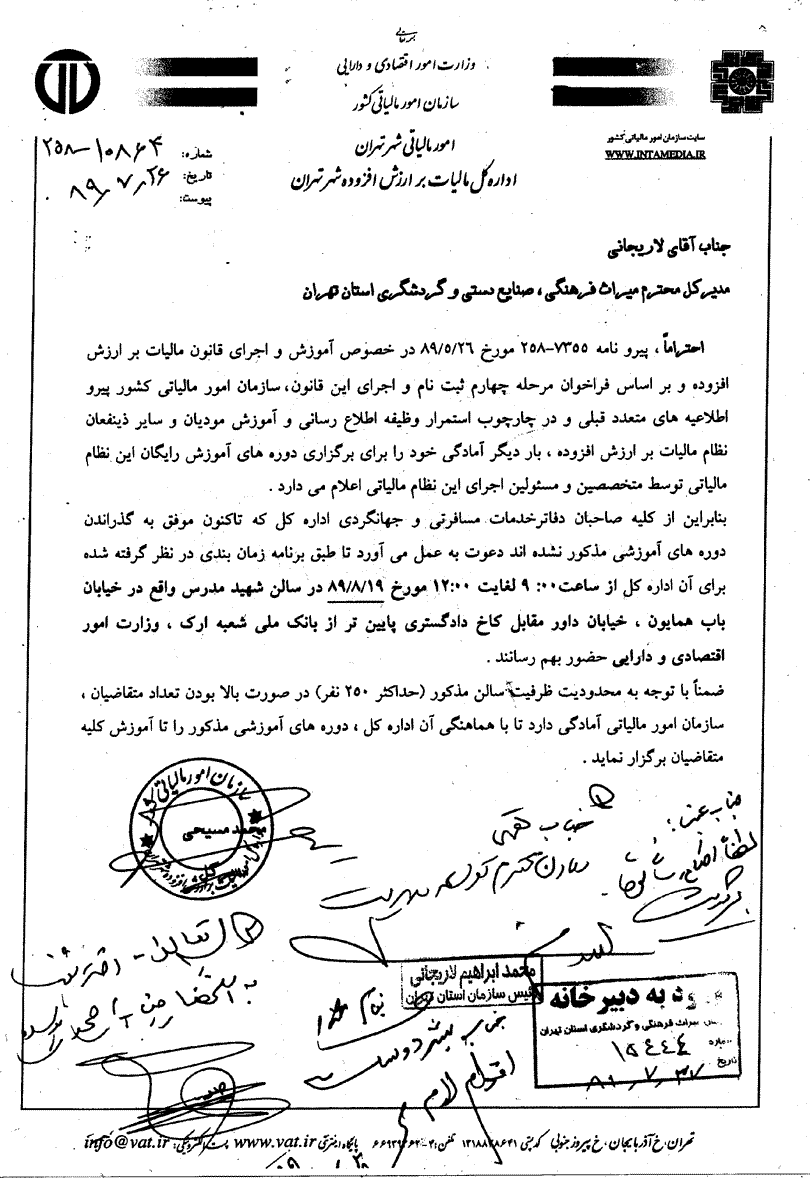 وزارت امور اقتصادی و دارایی
سازمان امور مالیاتی کشور
امور مالیاتی شهر تهران
اداره کل مالیات بر ارزش افزوده شهر تهران
سایت سازمان امور مالیاتی کشور
WWW.INTAMEDIA.IR
شماره: ۲۵۸-۱۰۸۶۴
تاریخ: ۸۹/۷/۲۶
پیوست:
جناب آقای لاریجانی
مدیر کل محترم میراث فرهنگی ، صنایع دستی و گردشگری استان تهران
احتراماً ، پیرو نامه ۷۳۵۵-۲۵۸ مورخ ۸۹/۵/۲۶ در خصوص آموزش و اجرای قانون مالیات بر ارزش
افزوده و بر اساس فراخوان مرحله چهارم ثبت نام و اجرای این قانون، سازمان امور مالیاتی کشور پیرو
اطلاعیه های متعدد قبلی و در چارچوب استمرار وظیفه اطلاع رسانی و آموزش مودیان و سایر ذینفعان
نظام مالیات بر ارزش افزوده ، بار دیگر آمادگی خود را برای برگزاری دوره های آموزش رایگان این نظام
مالیاتی توسط متخصصین و مسئولین اجرای این نظام مالیاتی اعلام می دارد .
بنابراین از کلیه صاحبان دفاترخدمات مسافرتی و جهانگردی اداره کل که تاکنون موفق به گذراندن
دوره های آموزشی مذکور نشده اند دعوت به عمل می آورد تا طبق برنامه زمان بندی در نظر گرفته شده
برای آن اداره کل از ساعت۰۰: ۹ لغایت ۱۲:۰۰ مورخ ۸۹/۸/۱۹ در سالن شهید مدرس واقع در خیابان
باب همایون ، خیابان داور مقابل کاخ دادگستری پایین تر از بانک ملی شعبه ارک ، وزارت امور
اقتصادی و دارایی حضور بهم رسانند .
ضمناً با توجه به محدودیت ظرفیت سالن مذکور (حداکثر ۲۵۰ نفر) در صورت بالا بودن تعداد متقاضیان ،
سازمان امور مالیاتی آمادگی دارد تا با هماهنگی آن اداره کل ، دوره های آموزشی مذکور را تا آموزش کلیه
متقاضیان برگزار نماید .
سازمان امور مالیاتی کشور
محمد مسیحی
محمد ابراهیم لاریجانی
رئیس سازمان استان تهران
به دبیرخانه
میراث فرهنگی و گردشگری استان تهران
شماره ۱۵۴۴۴
تاریخ
جناب
اقدام لازم
تهران، خ آذربایجان، خ پیروز جنوبی
پایگاه اینترنتی www.vat.ir پست الکترونیکی: info@vat.ir